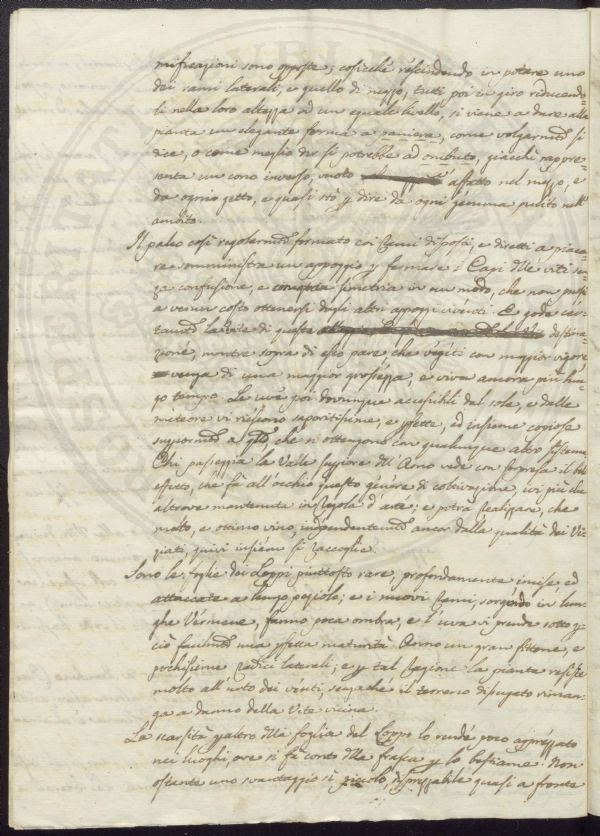 mificazioni sono opposte; cosicché rescindendo in potare uno
dei rami laterali, e quello di mezzo, tutti poi in giro riducendo-
li nella loro altezza ad un eguale livello, si viene a dare alla
pianta un elegante forma a paniera, come volgarmte si
dice, o come meglio dir si potrebbe ad ombuto, giacché rappre-
senta un cono inverso, vuoto affatto nel mezzo, e
da ogni getto, e quasi stò p dire da ogni gemma pulito nell'
ambito.
Il palco così regolarmte formato coi Rami disposti, e diretti a piace-
re somministra un appoggio p fermare i Capi dlle viti sen-
za confusione, e con simetria in un modo, che non puossi
a verun costo ottenersi dagli altri appoggi viventi. E gode cer-
tamte la vite di questa destina-
zione, mentre sopra di esso pare che vegeti con maggior vigore
e venga di una maggior grossezza, e viva ancora più lun-
go tempo. Le uve poi dovunque accessibili dal sole, e dalle
meteore vi riescono saporitissime, e pfette, ed insieme copiose
superiormte a qlle, che si ottengono con qualunque altro sistema.
Chi passeggia la Valle supiore dll'Arno vede con sorpresa il bell'
effetto, che fà all'occhio questo genere di coltivazione, ivi più che
altrove mantenuta in Regola d'arte; e potrà Realizzare, che
molto, e ottimo vino, independentemte ancor dalla qualità dei Vi-
ziati, quivi insiem si raccoglie.
Sono le foglie dei Loppi piuttosto rare, profondamente incise ed
attaccate a lungo peziolo; e i nuovi Rami, sorgendo in lun-
ghe Vermene, fanno poca ombra, e l'uva vi prende sotto p
ciò facilmte una pfetta maturità. Anno un gran fittone, e
pochissime Radici laterali; e p tal Ragione la pianta resiste
molto all'urto dei venti, senzaché il terreno disugato riman-
ga a danno della Vite vicina.
La scarsità paltro dlla foglia del Loppo lo rende poco apprezzato
nei luoghi, ove si fà conto dlla frasca p lo bestiame. Non
ostante uno svantaggio sì piccolo, disprezzabile quasi a fronte